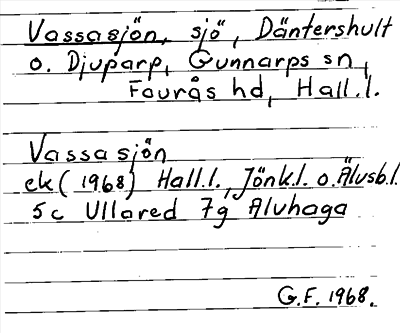 Vassasjön, sjö, Däntershult
o. Djuparp, Gunnarps sn,
Faurås hd, Hall.l.
Vassasjön
ek (1968) Hall.l., Jönk.l. o. Älvsb.l.
5c Ullared 7g Alvhaga
G.F. 1968.